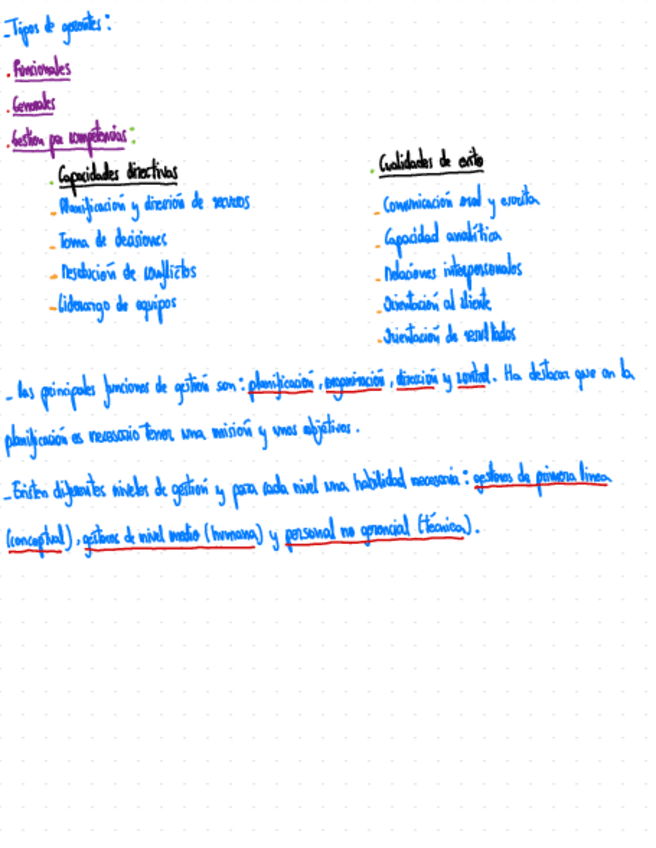 - Tipos de gerentes:
. Funcionales
. Generales
. Gestion por competencias:
. Capacidades directivas
- Planificación y dirección de recursos
- Toma de decisiones
- Resolución de conflictos
- Liderazgo de equipos
. Cualidades de exito
- Comunicación oral y escrita
- Capacidad analítica
- Relaciones interpersonales
- Orientación al cliente
- Orientación de resultados
- Las principales funciones de gestión son: planificación, organización, dirección y control. Ha destacar que en la
planificación es necesario tener una misión y unos objetivos.
- Existen diferentes niveles de gestión y para cada nivel una habilidad necesaria: gestores de primera linea
(conceptual), gestores de nivel medio (humana) y personal no gerencial (técnica).